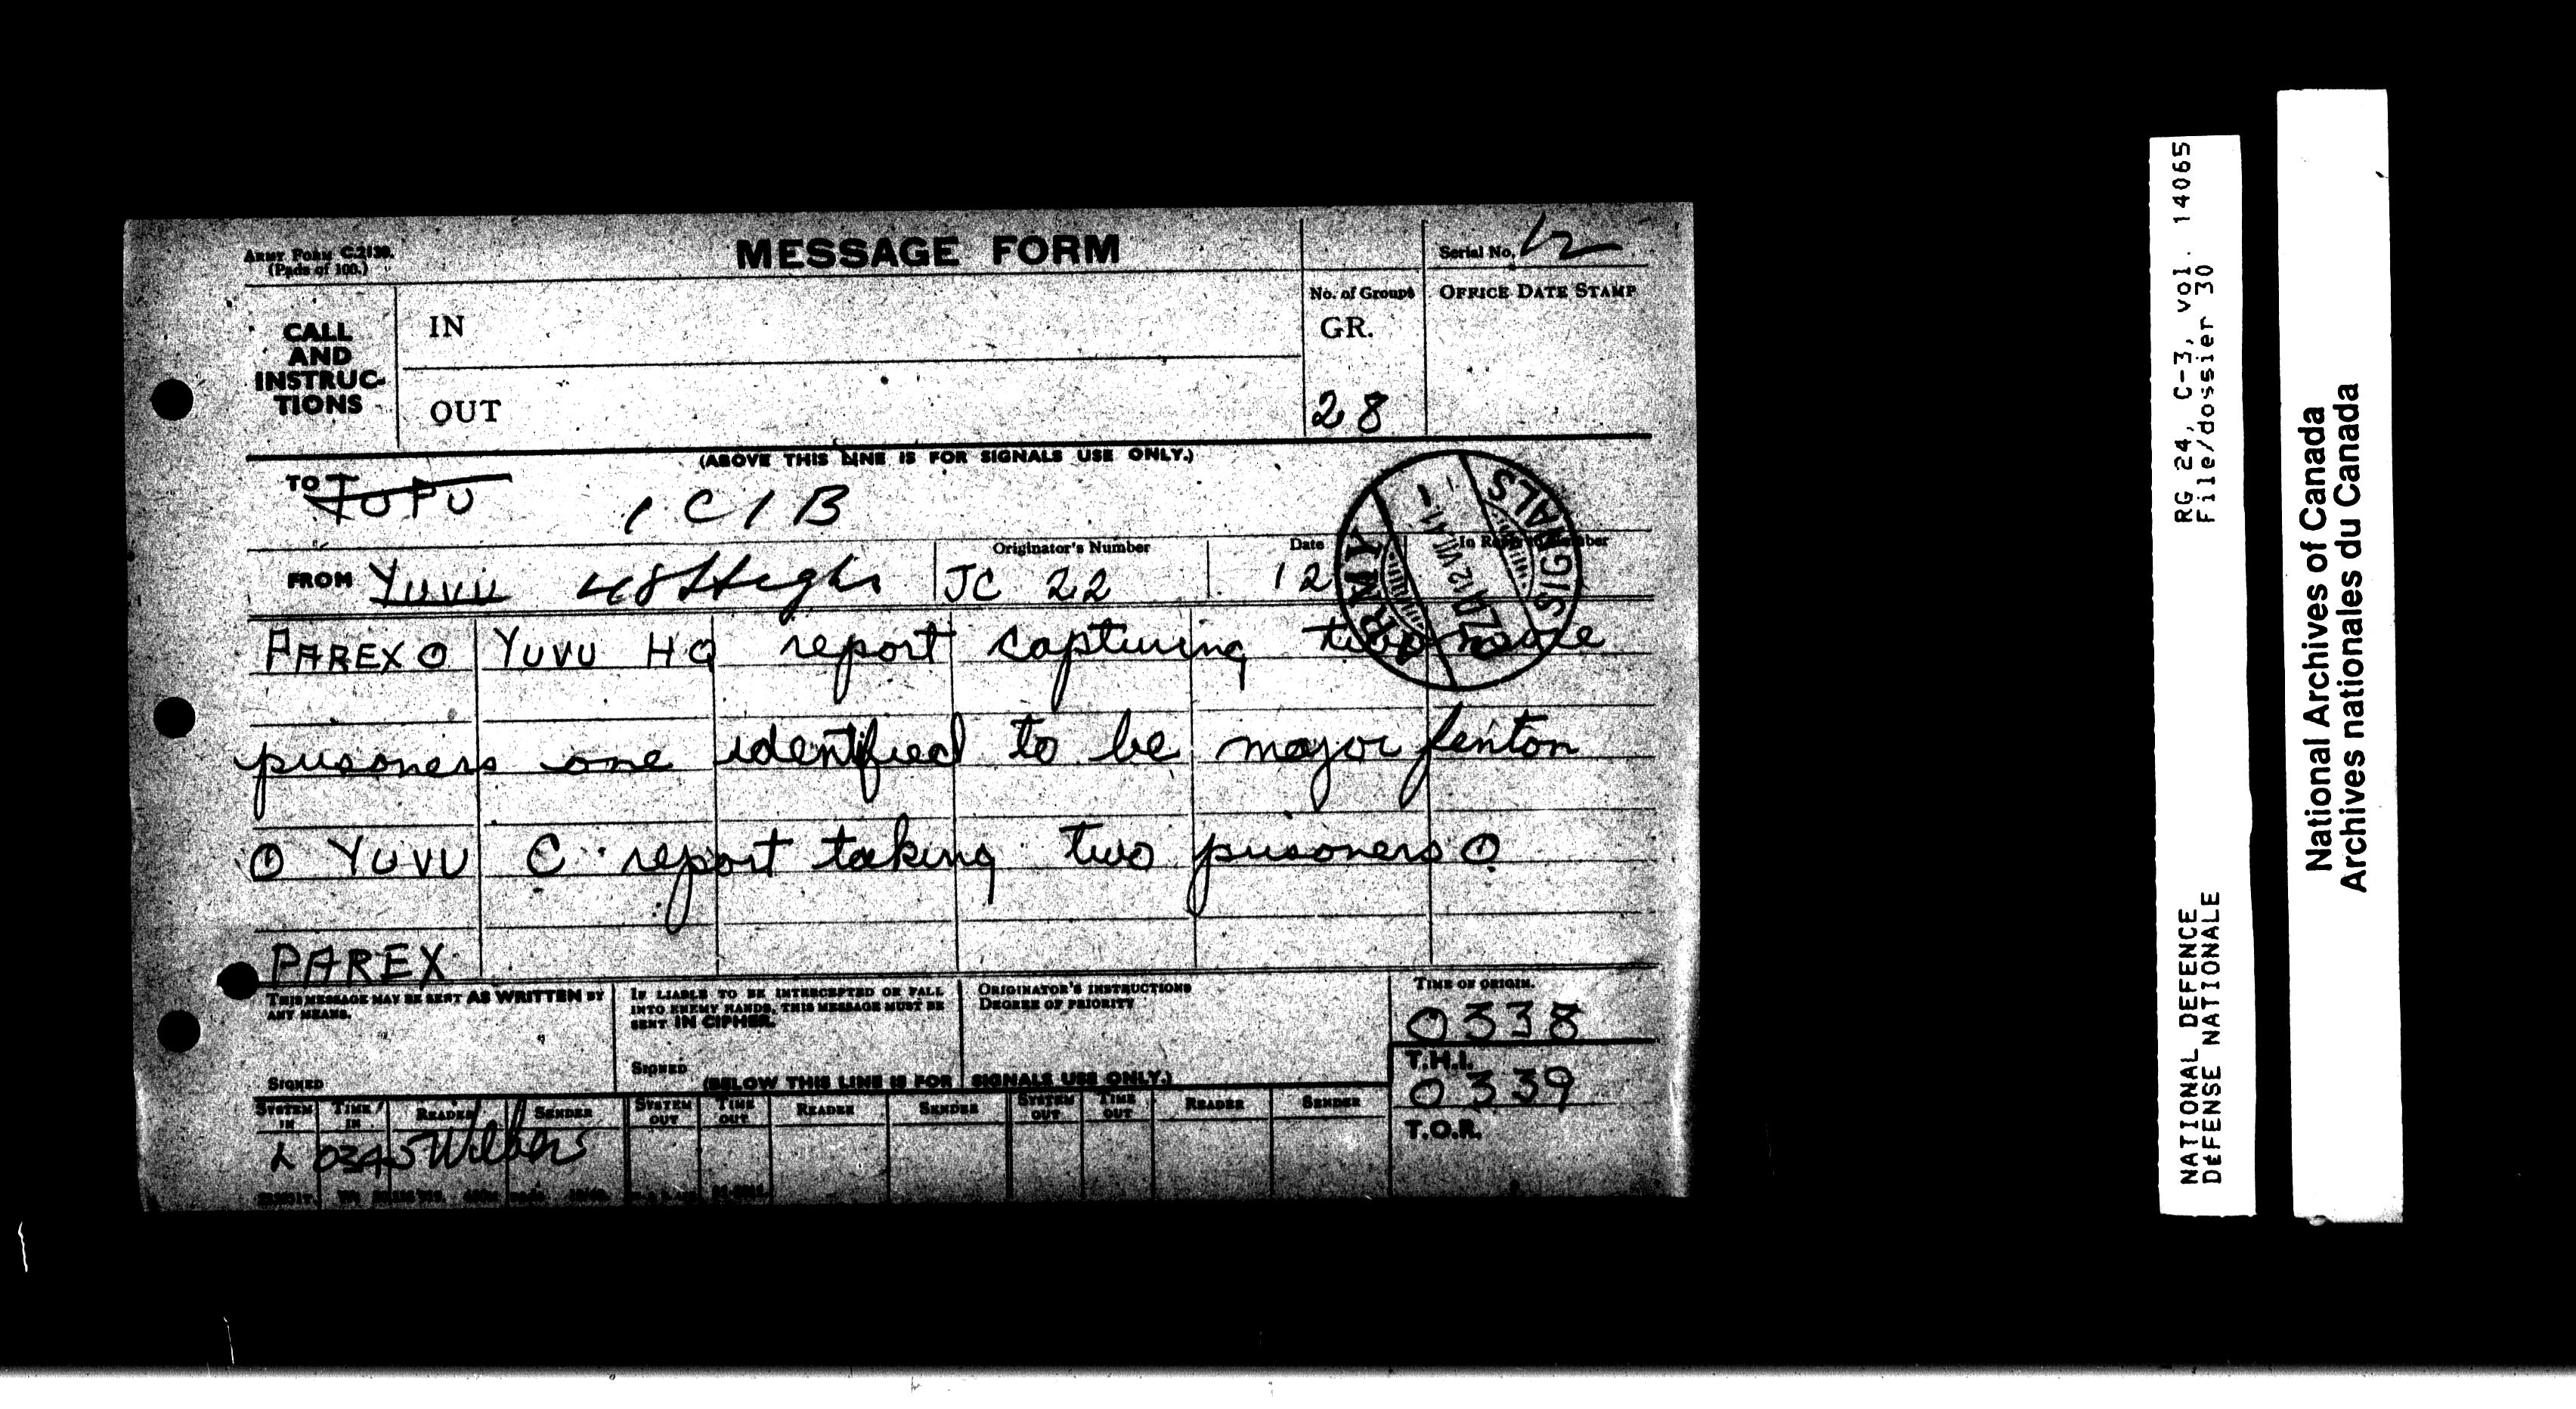 ARMY FORM C.2138.
(Pads of 100.)
MESSAGE FORM
Serial No. 12
CALL AND INSTRUC-TIONS
IN
OUT
No. of Groups
GR.
28
OFFICE DATE STAMP
(ABOVE THIS LINE IS FOR SIGNALS USE ONLY.)
TO TOPU 1 C I B
FROM YUVU 48 Highrs
Originator's Number
JC 22
Date
12
In Reply to Number
ARMY SIGNALS
PAREX O YUVU HQ report capturing two more
prisoners one identified to be major fenton
O YUVU C report taking two prisoners O
PAREX
THIS MESSAGE MAY BE SENT AS WRITTEN BY ANY MEANS.
SIGNED
IF LIABLE TO BE INTERCEPTED OR FALL INTO ENEMY HANDS, THIS MESSAGE MUST BE SENT IN CIPHER.
SIGNED
ORIGINATOR'S INSTRUCTIONS
DEGREE OF PRIORITY
TIME OF ORIGIN.
0338
T.H.I.
0339
T.O.R.
(BELOW THIS LINE IS FOR SIGNALS USE ONLY.)
SYSTEM IN TIME IN READER SENDER SYSTEM OUT TIME OUT READER SENDER SYSTEM OUT TIME OUT READER SENDER
L 0345
RG 24, C-3, vol. 14065
File/dossier 30
NATIONAL DEFENCE
DEFENSE NATIONALE
National Archives of Canada
Archives nationales du Canada